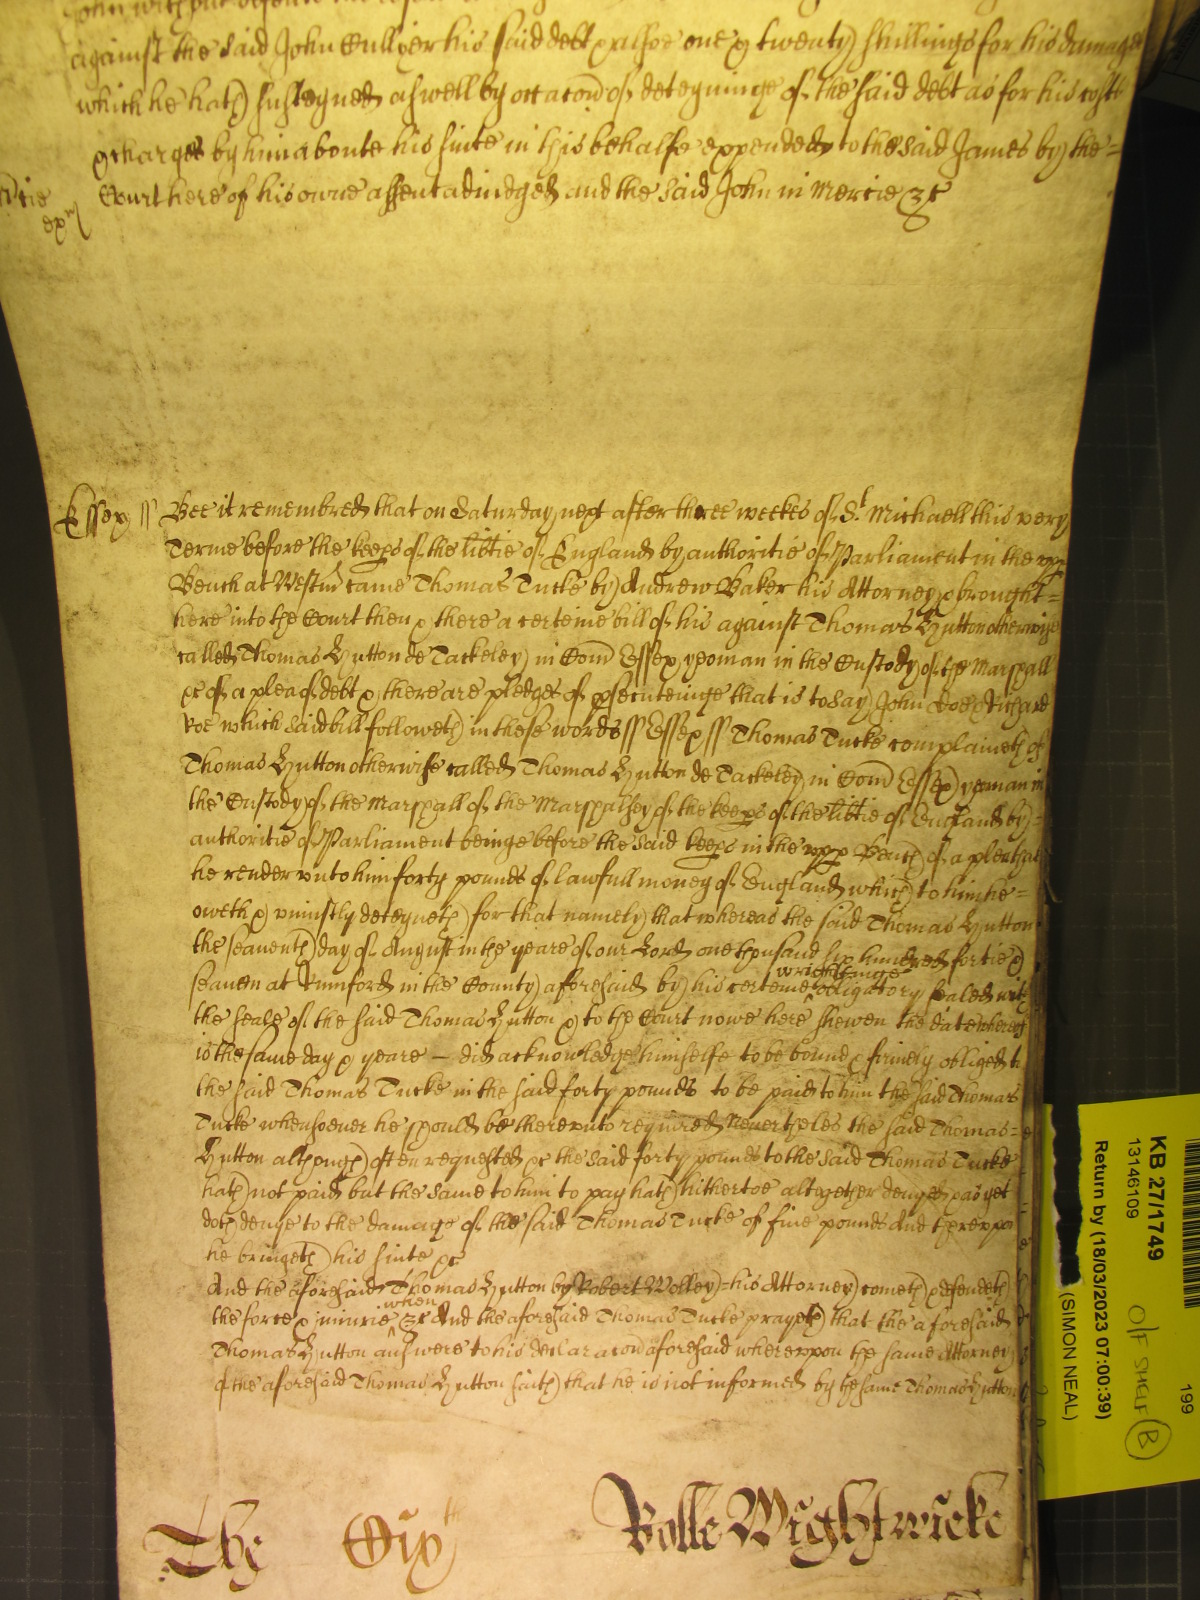 against the said John Cullyer his said debt & alsoe one & twenty shillings for his damages
which he hath susteyned aswell by occacion of deteyninge of the said debt as for his costs
& charges by him aboute his suite in this behalfe expended to the said James by the =
Court here of his owne assent adiudged and the said John in Mercie &c
Essex ss Bee it remembred that on Saturday next after three weekes of St Michaell this very
Terme before the keeps of the libtie of England by authoritie of Parliament in the upp
Bench at Westm came Thomas Tucke by Andrew Baker his Attorney & brought =
here into the Court then & there a certeine bill of his against Thomas Hutton otherwise
called Thomas Hutton de Tackeley in Com Essex yeoman in the Custody of the Marshall
&c of a plea of debt & there are pledges of psecuteinge that is to say John Doe & Richard
Roe which said bill followeth in these words ss Essex ss Thomas Tucke complaineth of
Thomas Hutton otherwise called Thomas Hutton de Tackeley in Com Essex yeoman in
the Custody of the Marshall of the Marshalsey of the keeps of the libtie of England by =
authoritie of Parliament beinge before the said keeps in the upp Bench of a plea that
he render unto him forty pounds of lawfull money of England which to him he =
oweth & uniustly deteyneth for that namely that whereas the said Thomas Hutton
the seaventh day of August in the yeare of our Lord one thousand six hundred fortie &
seaven at Rumford in the County aforesaid by his certeine wrightinge obligatory sealed with
the seale of the said Thomas Hutton & to the Court nowe here shewen the date whereof
is the same day & yeare - did acknowledge himselfe to be bound & firmely obliged to
the said Thomas Tucke in the said forty pounds to be paid to him the said Thomas
Tucke whensoever he should be thereunto required Neverthelës the said Thomas =
Hutton although often requested &c the said forty pounds to the said Thomas Tucke
hath not paid but the same to him to pay hath hithertoe altogether denyed & as yet
doth denye to the damage of the said Thomas Tucke of five pounds And thereupon
he bringeth his suite &c
And the aforesaid Thomas Hutton by Robert Wolley = his Attorney cometh & defendeth
the force & iniurie when &c And the aforesaid Thomas Tucke prayeth that the aforesaid
Thomas Hutton answere to his declaracon aforesaid whereupon the same Attorney
of the aforesaid Thomas Hutton saith that he is not informed by the same Thomas Hutton
The Sixth Rolle Wightwicke
KB 27/1749
13146109
Return by (18/03/2023 07:00:39)
(SIMON NEAL)
O/F SHELF B
199